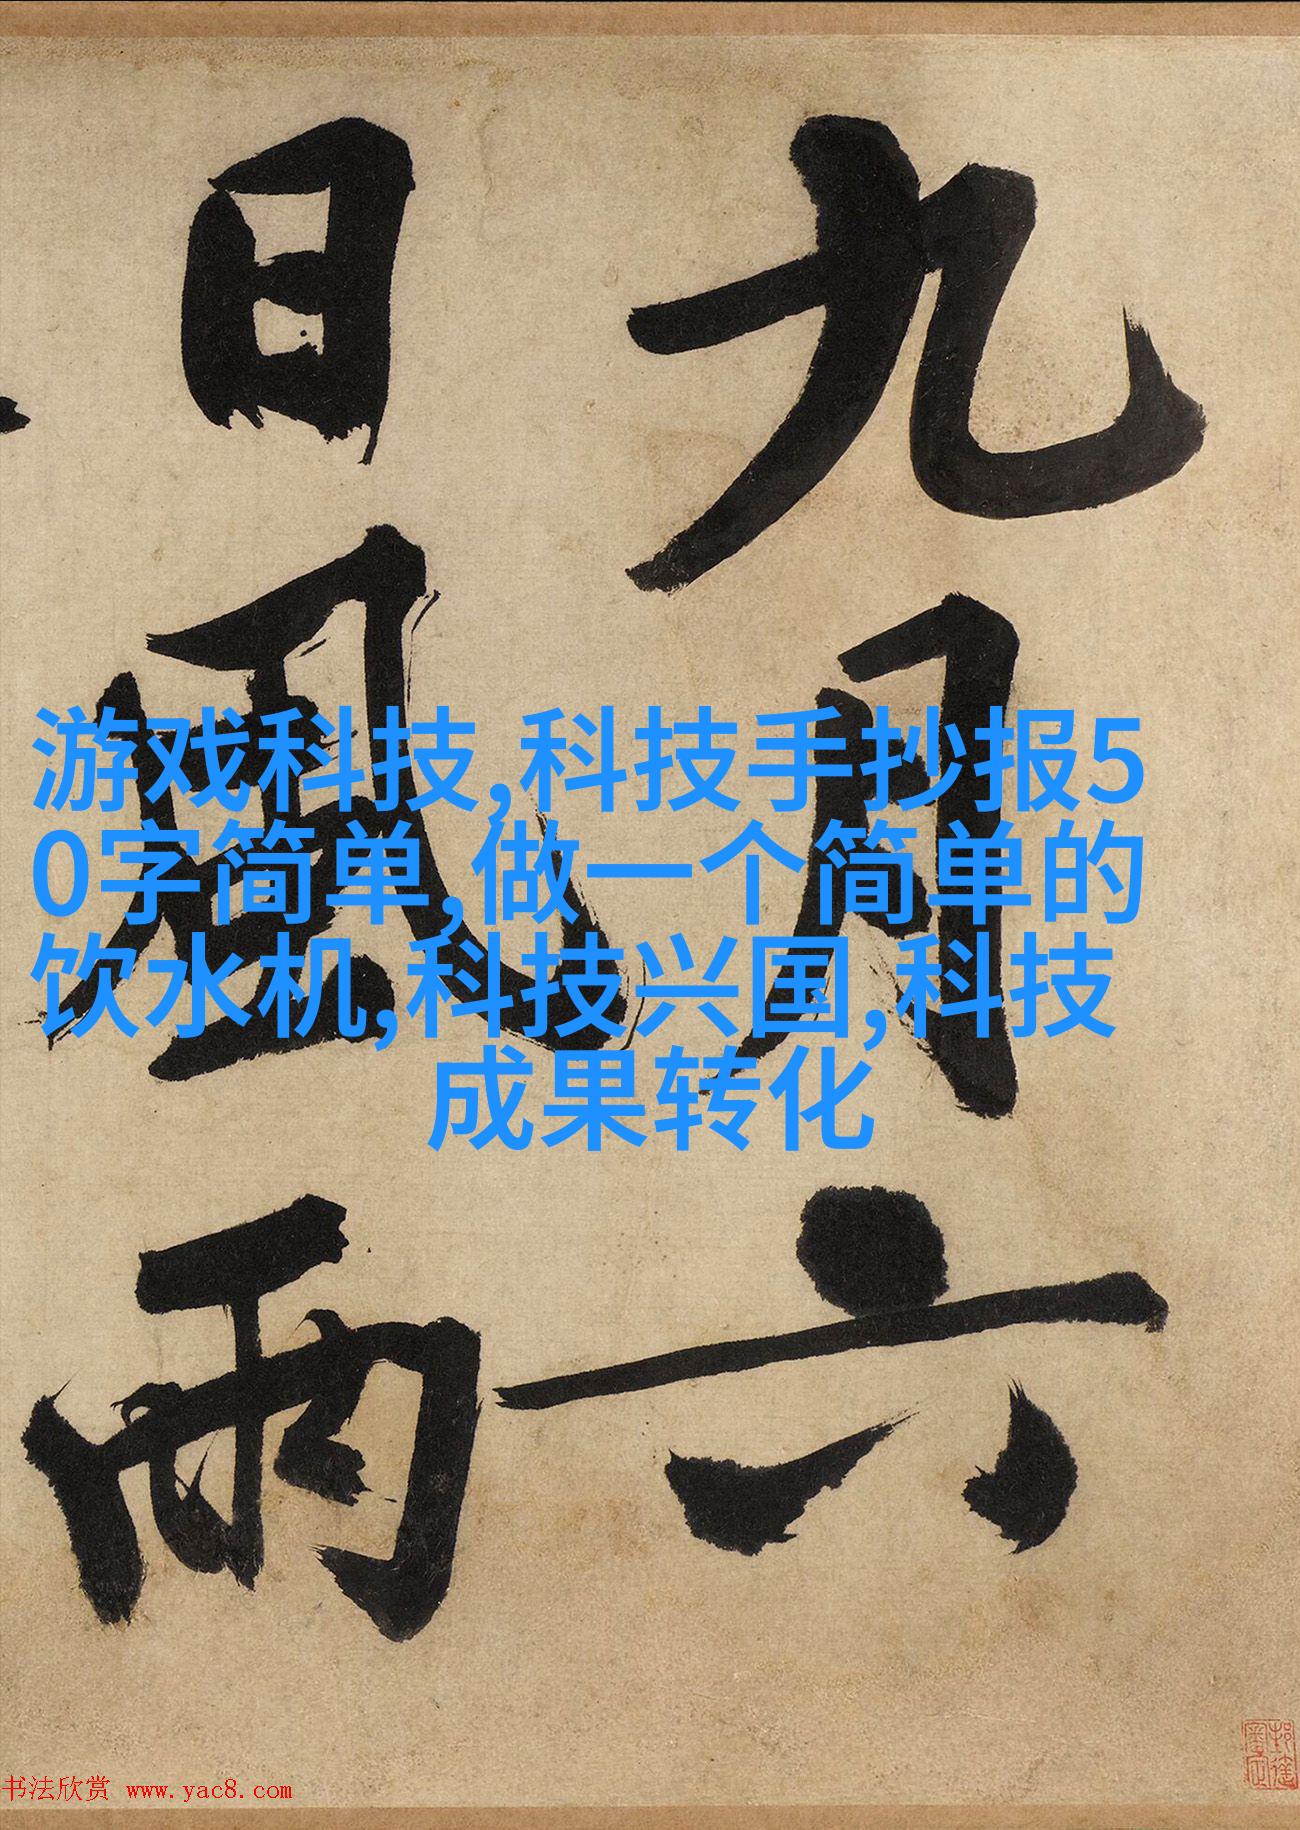 九月六
日風雨
游戏科技,科技手抄报5
0字简单,做一个简单的
饮水机,科技兴国,科技
成果转化
书法欣赏 www.yac8.com